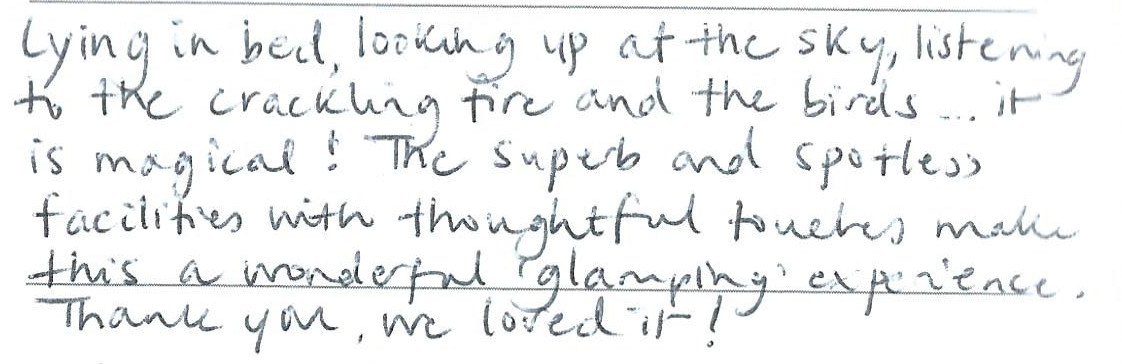 Lying in bed, looking up at the sky, listening
to the crackling fire and the birds ... it
is magical! The superb and spotless
facilities with thoughtful touches make
this a wonderful 'glamping' experience.
Thank you, we loved it!